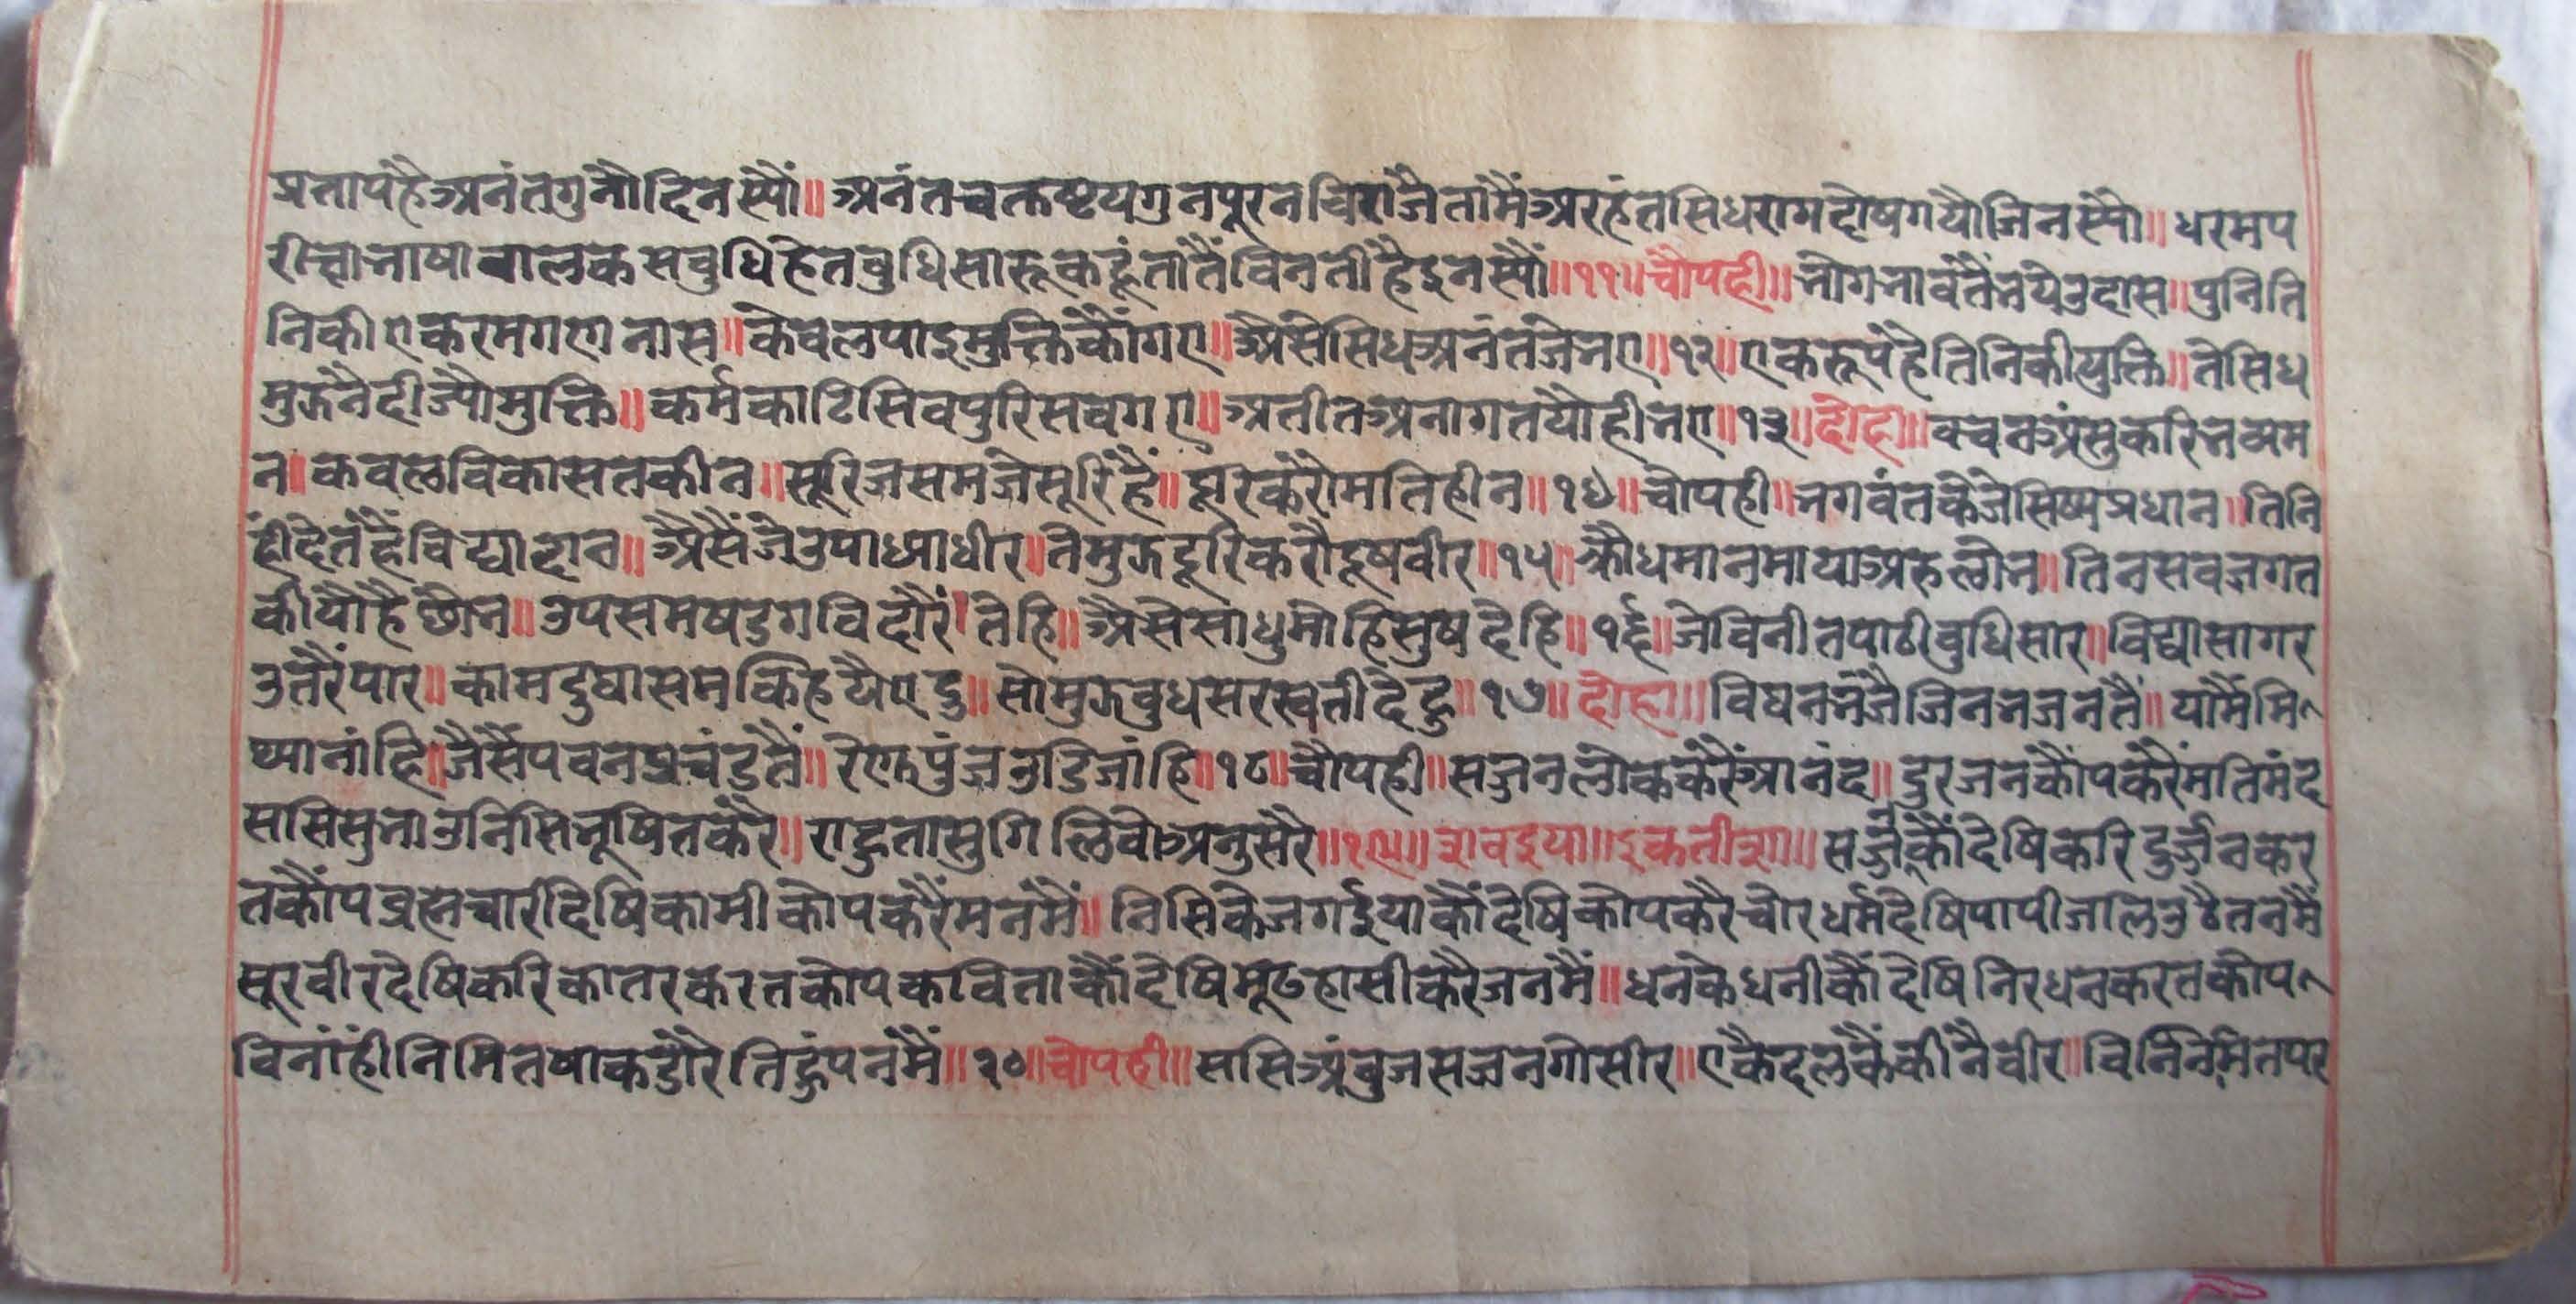 प्रतापहैअनंतगुनौदिनस्यौं॥ अनंतचत्तष्टयगुनपूरनविराजैतामैंअरहंतसिधरागदोषगयौजिनस्यौ॥ धरमप
रीछाभाषाबालकसबुधिहेतबुधिसारूकहूंतातैंविनतीहैइनस्यौं॥११॥चौपही॥भोगभावतैंभयेउदास॥पुनिति
निकीएकरमगएनास॥केवलपाइमुक्तिकौंगए॥अैसेसिधअनंतजेभए॥१२॥एकरूपहैतिनिकीयुक्ति॥तेसिध
मुझनैदीज्यौमुक्ति॥कर्मकाटिसिवपुरिसवगए॥अतीतअनागतयौहीभए॥१३॥दोहा॥वचनअंसुकरिभव्यम
न॥कवलविकासतकीन॥सूरिजसमजेसूरिहैं॥दूरिकरोमतिहीन॥१४॥चौपही॥भगवंतकैजेसिष्यप्रधान॥तिनि
हीदेतहैंविद्यादान॥अैसैंजेउपाध्याधीर॥तेमुझदूरिकरौदूषवीर॥१५॥क्रौधमानमायाअरुलोभ॥तिनसवजगत
कीयौहैछोभ॥उपसमषडगविदारैंतेहि॥अैसेसाधुमोहिसुषदेहि॥१६॥जेविनीतपाठीवुधिसार॥विद्यासागर
उतरैंपार॥कामदुघासमकहियैएहु॥सोमुझवुधसरस्वतीदेहु॥१७॥दोहा॥विघनभजैजिनभजनतैं॥यामैंमि
थ्यानांहि॥जैसैंपवनप्रचंडतैं॥रेणुपुंजउडिजांहि॥१८॥चौपही॥सज्जनलोककरैंआनंद॥दुरजनकौंपकरैंमतिमंद
ससिसुभाउनिसिभूषितकरै॥राहुतासुगिलिवोअनुसरै॥१९॥सवइया॥इकतीसा॥सर्जनकौंदेषिकरिदुर्जनकर
तकौंपब्रह्मचारीदेषिकामीकोपकरैंमनमैं॥निसिकेजगईयाकौंदेषिकोपकरैचोरधर्मदेषिपापीजालिउठैतनमैं
सूरवीरदेषिकरिकातरकरतकोपकविताकौंदेषिमूढहासीकरैजनमैं॥धनकेधनीकौंदेषिनिरधनकरतकोप
विनांहीनिमितषाकडारैतिहुंपनमैं॥२०॥चौपही॥ससिअंवुजसज्जनगोसीर॥एकैदलकैकीनैवीर॥विनिनमितपर